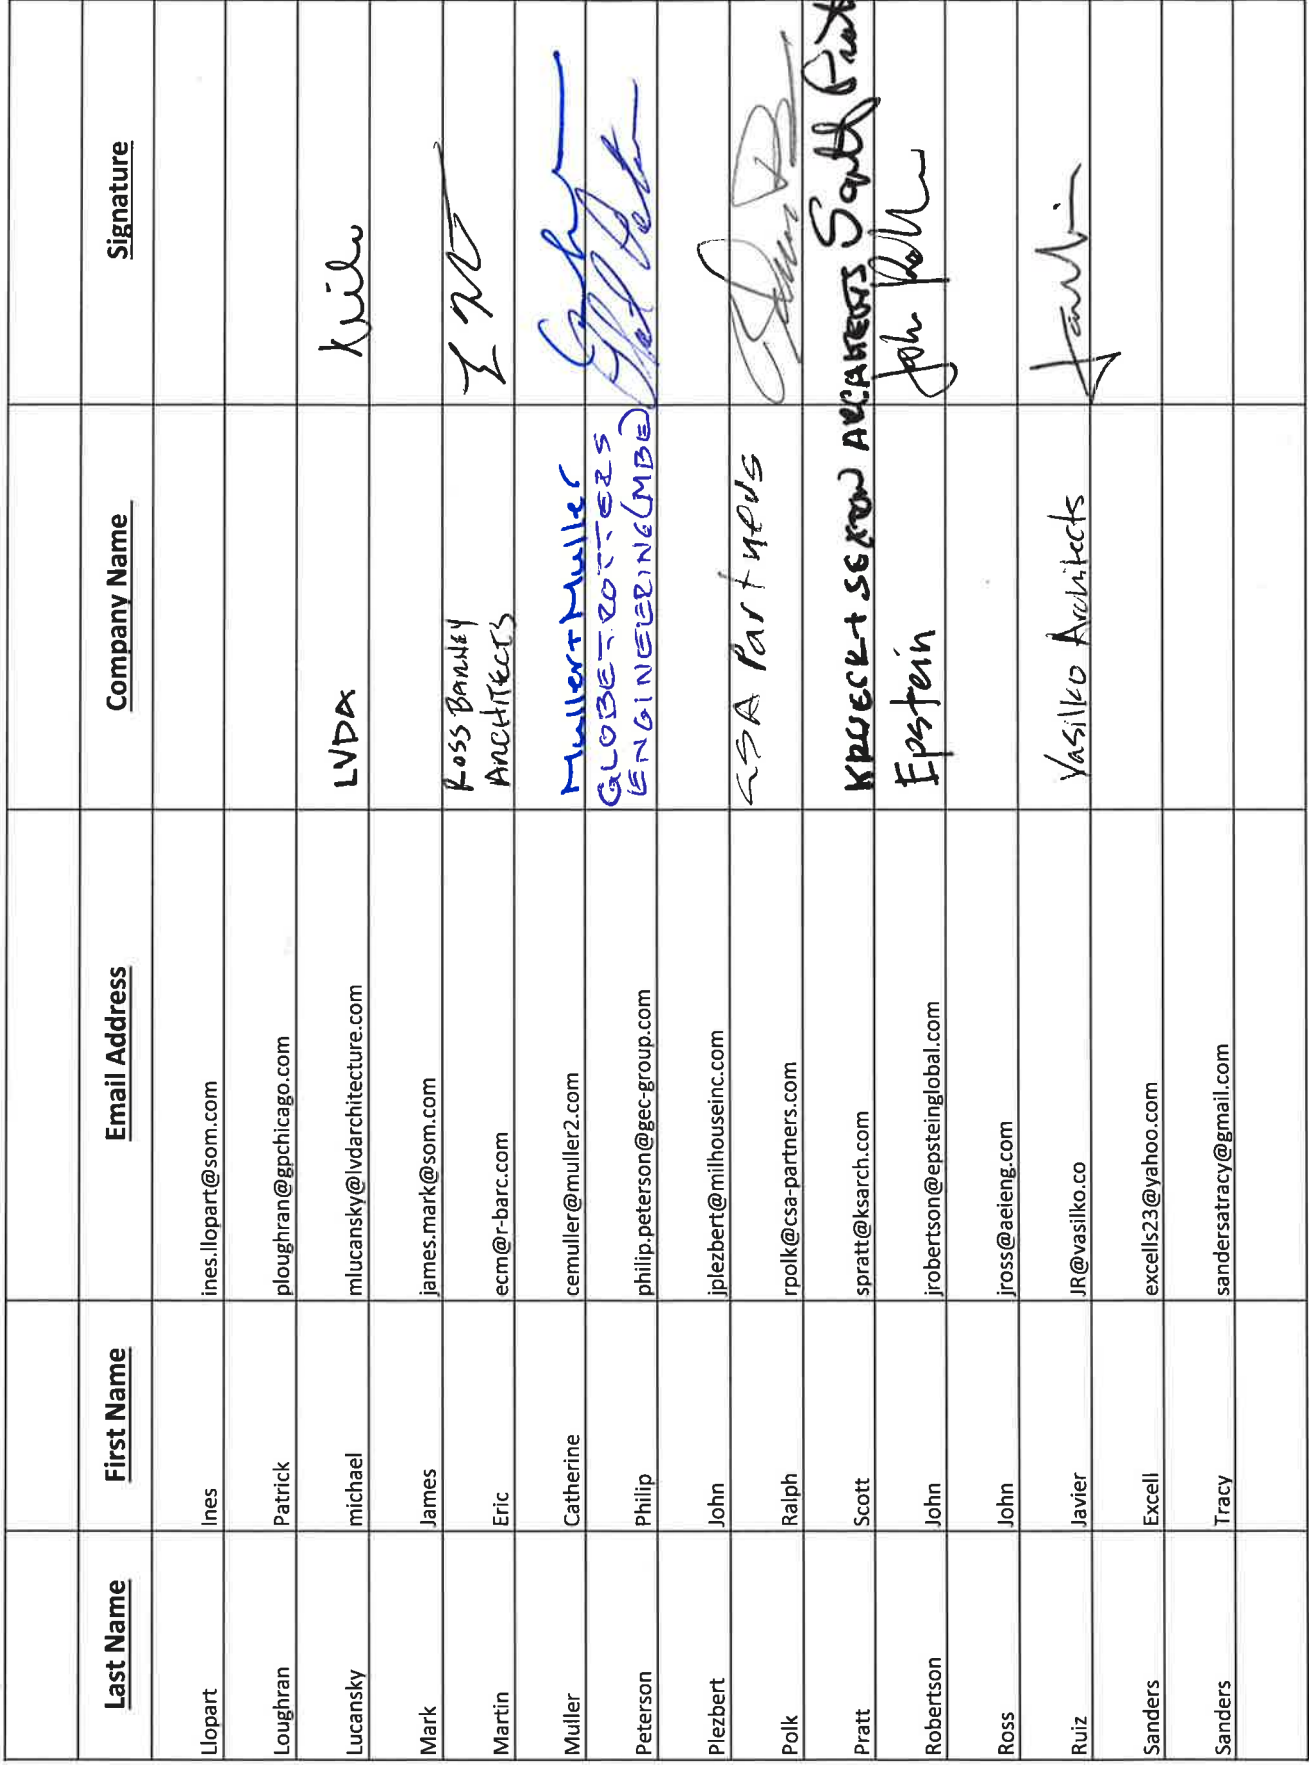 Last Name First Name Email Address Company Name Signature
Llopart Ines ines.llopart@som.com
Loughran Patrick ploughran@gpchicago.com
Lucansky michael mlucansky@lvdarchitecture.com LVDA
Mark James james.mark@som.com
Martin Eric ecm@r-barc.com ROSS BARNEY
ARCHITECTS
Muller Catherine cemuller@muller2.com Muller+Muller
Peterson Philip philip.peterson@gec-group.com GLOBETROTTERS
ENGINEERING (MBE)
Plezbert John jplezbert@milhouseinc.com
Polk Ralph rpolk@csa-partners.com CSA Partners
Pratt Scott spratt@ksarch.com KRUECK + SEXTON ARCHITECTS Scott Pratt
Robertson John jrobertson@epsteinglobal.com Epstein John
Ross John jross@aeieng.com
Ruiz Javier JR@vasilko.co Vasilko Architects
Sanders Excell excells23@yahoo.com
Sanders Tracy sandersatracy@gmail.com